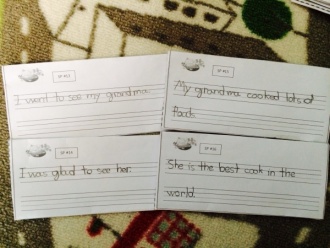 I want to see my grandma.
My grandma cooked lots of
I was glad to see her.
She is the best cook in the
world.